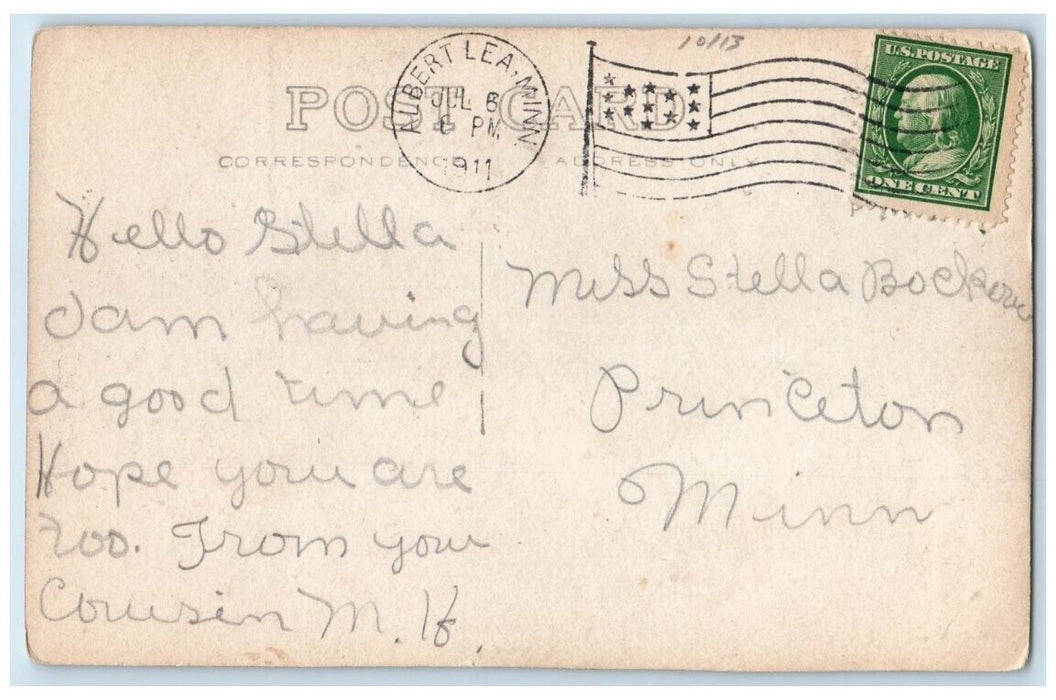 10/13
ALBERT LEA, MINN.
JUL 6
6 PM
1911
U.S. POSTAGE
ONE CENT
POST CARD
CORRESPONDENCE
ADDRESS ONLY
Hello Stella
I am having
a good time
Hope your are
too. From your
Cousin M. H.
Miss Stella
Princeton
Minn